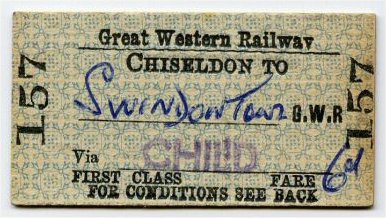 157
Great Western Railway
CHISELDON TO
Swindon Town G.W.R
Via CHILD
FIRST CLASS FARE 6d
FOR CONDITIONS SEE BACK
157